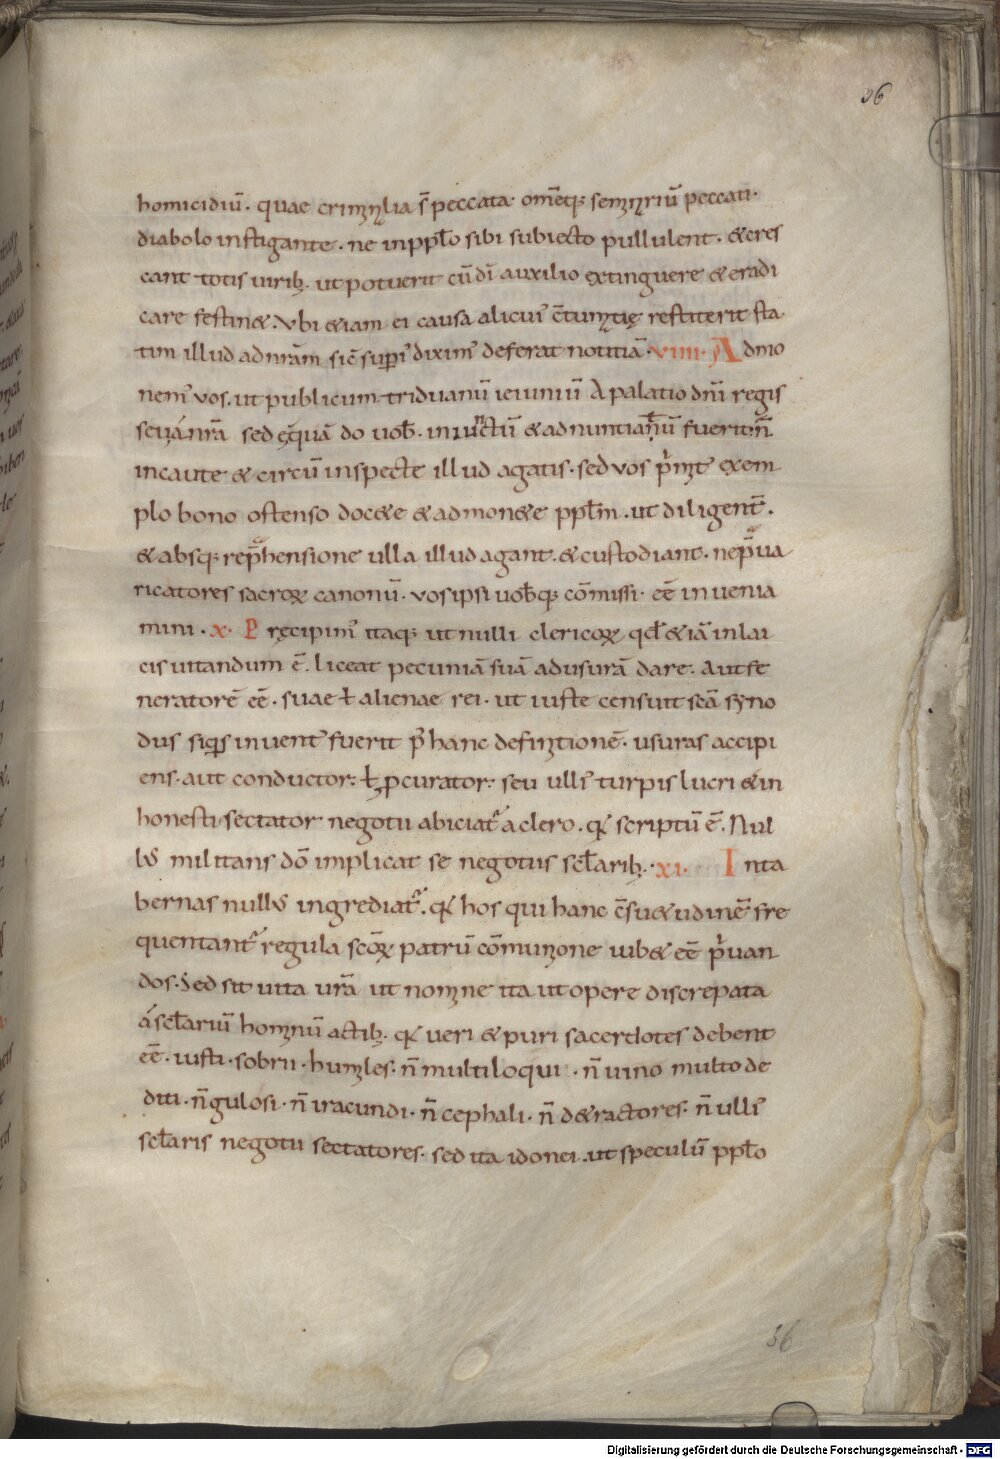 36
homicidiū. quae criminalia s̄ peccata. om̄eq; seminariū peccati.
diabolo instigante. ne inpplo sibi subiecto pullulent. & cres
cant totis uirib; ut potuerit cū dī auxilio extinguere & eradi
care festin&. Vbi &iam ei causa alicui' restiterit sta
tim illud ad nr̄am sic̄ supi' dixim' deferat notitiā. VIIII. Admo
nem' vos. ut publicum triduanū ieiuniū A palatio dn̄i regis
seu á nr̄a sed quā do uob. iniunctū & adnuntiatū fuerit n̄
incaute & circūinspecte illud agatis. sed vos prim' exem
plo bono ostenso doc&e & admon&e pplm. ut diligent̄.
& absq; rep̄hensione ulla illud agant. & custodiant. nep̄ua
ricatores sacroꝝ canonū. vos ipsi uobq; cōmissi. eē inuenia
mini. X. Pręcipim' itaq; ut nulli clericoꝝ qd &iā in lai
cis uitandum ē. liceat pecuniā suā adusurā dare. Aut fe
neratorē eē. suae ł alienae rei. ut iuste censuit sc̄a syno
dus siq̄s inuent' fuerit p' hanc definitionē. usuras accipi
ens. aut conductor. ł pcurator. seu ulli' turpis lucri & in
honesti sectator negotii abiciat' a clero. qꝫ scriptū ē. Nul
lus militans dō implicat se negotiis sclarib;. XI. In ta
bernas nullus ingrediat'. qꝫ hos qui hanc c̄su&udinē fre
quentant' regula scoꝝ patrū cōmunione iub& eē p'uan
dos. Sed sit uita ur̄a ut nomine ita ut opere discrepata
á sclariū hominū actib;. qꝫ ueri & puri sacerdotes debent
eē. iusti. sobrii. humiles. n̄ multiloqui. n̄ uino multo de
diti. n̄ gulosi. n̄ iracundi. n̄ cephali. n̄ d&ractores. n̄ ulli'
sclaris negotii sectatores. sed ita idonei. ut speculū pplo
36
Digitalisierung gefördert durch die Deutsche Forschungsgemeinschaft - DFG